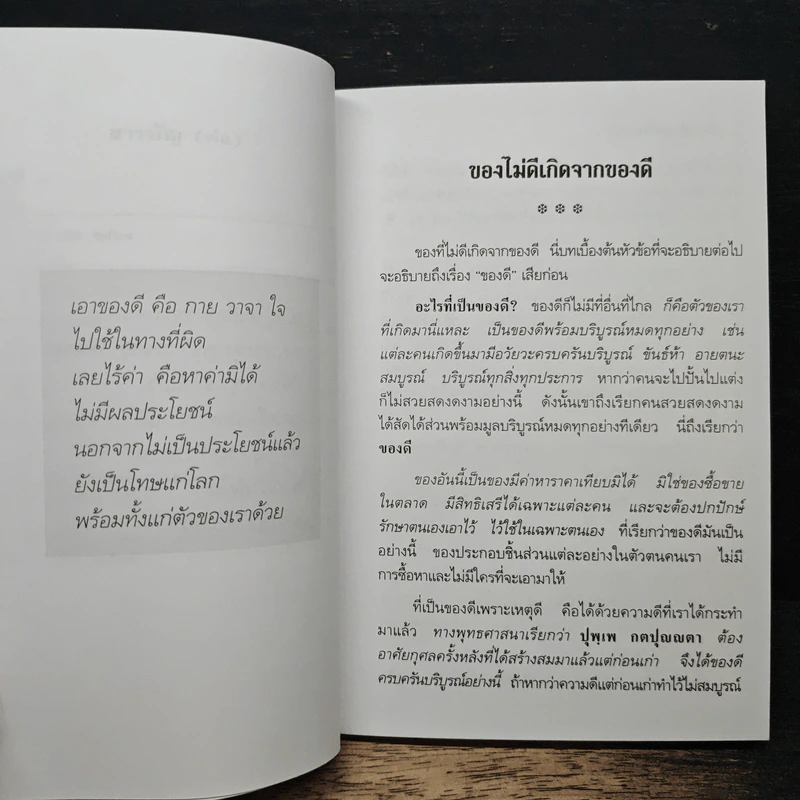 เอาของดี คือ กาย วาจา ใจ
ไปใช้ในทางที่ผิด
เลยไร้ค่า คือหาค่ามิได้
ไม่มีผลประโยชน์
นอกจากไม่เป็นประโยชน์แล้ว
ยังเป็นโทษแก่โลก
พร้อมทั้งแก่ตัวของเราด้วย
ของไม่ดีเกิดจากของดี
❄ ❄ ❄
ของที่ไม่ดีเกิดจากของดี นี่บทเบื้องต้นหัวข้อที่จะอธิบายต่อไป
จะอธิบายถึงเรื่อง "ของดี" เสียก่อน
อะไรที่เป็นของดี? ของดีก็ไม่มีที่อื่นที่ไกล ก็คือตัวของเรา
ที่เกิดมานี่แหละ เป็นของดีพร้อมบริบูรณ์หมดทุกอย่าง เช่น
แต่ละคนเกิดขึ้นมามีอวัยวะครบครันบริบูรณ์ ขันธ์ห้า อายตนะ
สมบูรณ์ บริบูรณ์ทุกสิ่งทุกประการ หากว่าคนจะไปปั้นไปแต่ง
ก็ไม่สวยสดงดงามอย่างนี้ ดังนั้นเขาถึงเรียกคนสวยสดงดงาม
ได้สัดได้ส่วนพร้อมมูลบริบูรณ์หมดทุกอย่างทีเดียว นี่ถึงเรียกว่า
ของดี
ของอันนี้เป็นของมีค่าหาราคาเทียบมิได้ มิใช่ของซื้อขาย
ในตลาด มีสิทธิเสรีได้เฉพาะแต่ละคน และจะต้องปกปักษ์
รักษาตนเองเอาไว้ ไว้ใช้ในเฉพาะตนเอง ที่เรียกว่าของดีมันเป็น
อย่างนี้ ของประกอบชิ้นส่วนแต่ละอย่างในตัวตนคนเรา ไม่มี
การซื้อหาและไม่มีใครที่จะเอามาให้
ที่เป็นของดีเพราะเหตุดี คือได้ด้วยความดีที่เราได้กระทำ
มาแล้ว ทางพุทธศาสนาเรียกว่า ปุพฺเพ กตปุญฺญตา ต้อง
อาศัยกุศลครั้งหลังที่ได้สร้างสมมาแล้วแต่ก่อนเก่า จึงได้ของดี
ครบครันบริบูรณ์อย่างนี้ ถ้าหากว่าความดีแต่ก่อนเก่าทำไว้ไม่สมบูรณ์